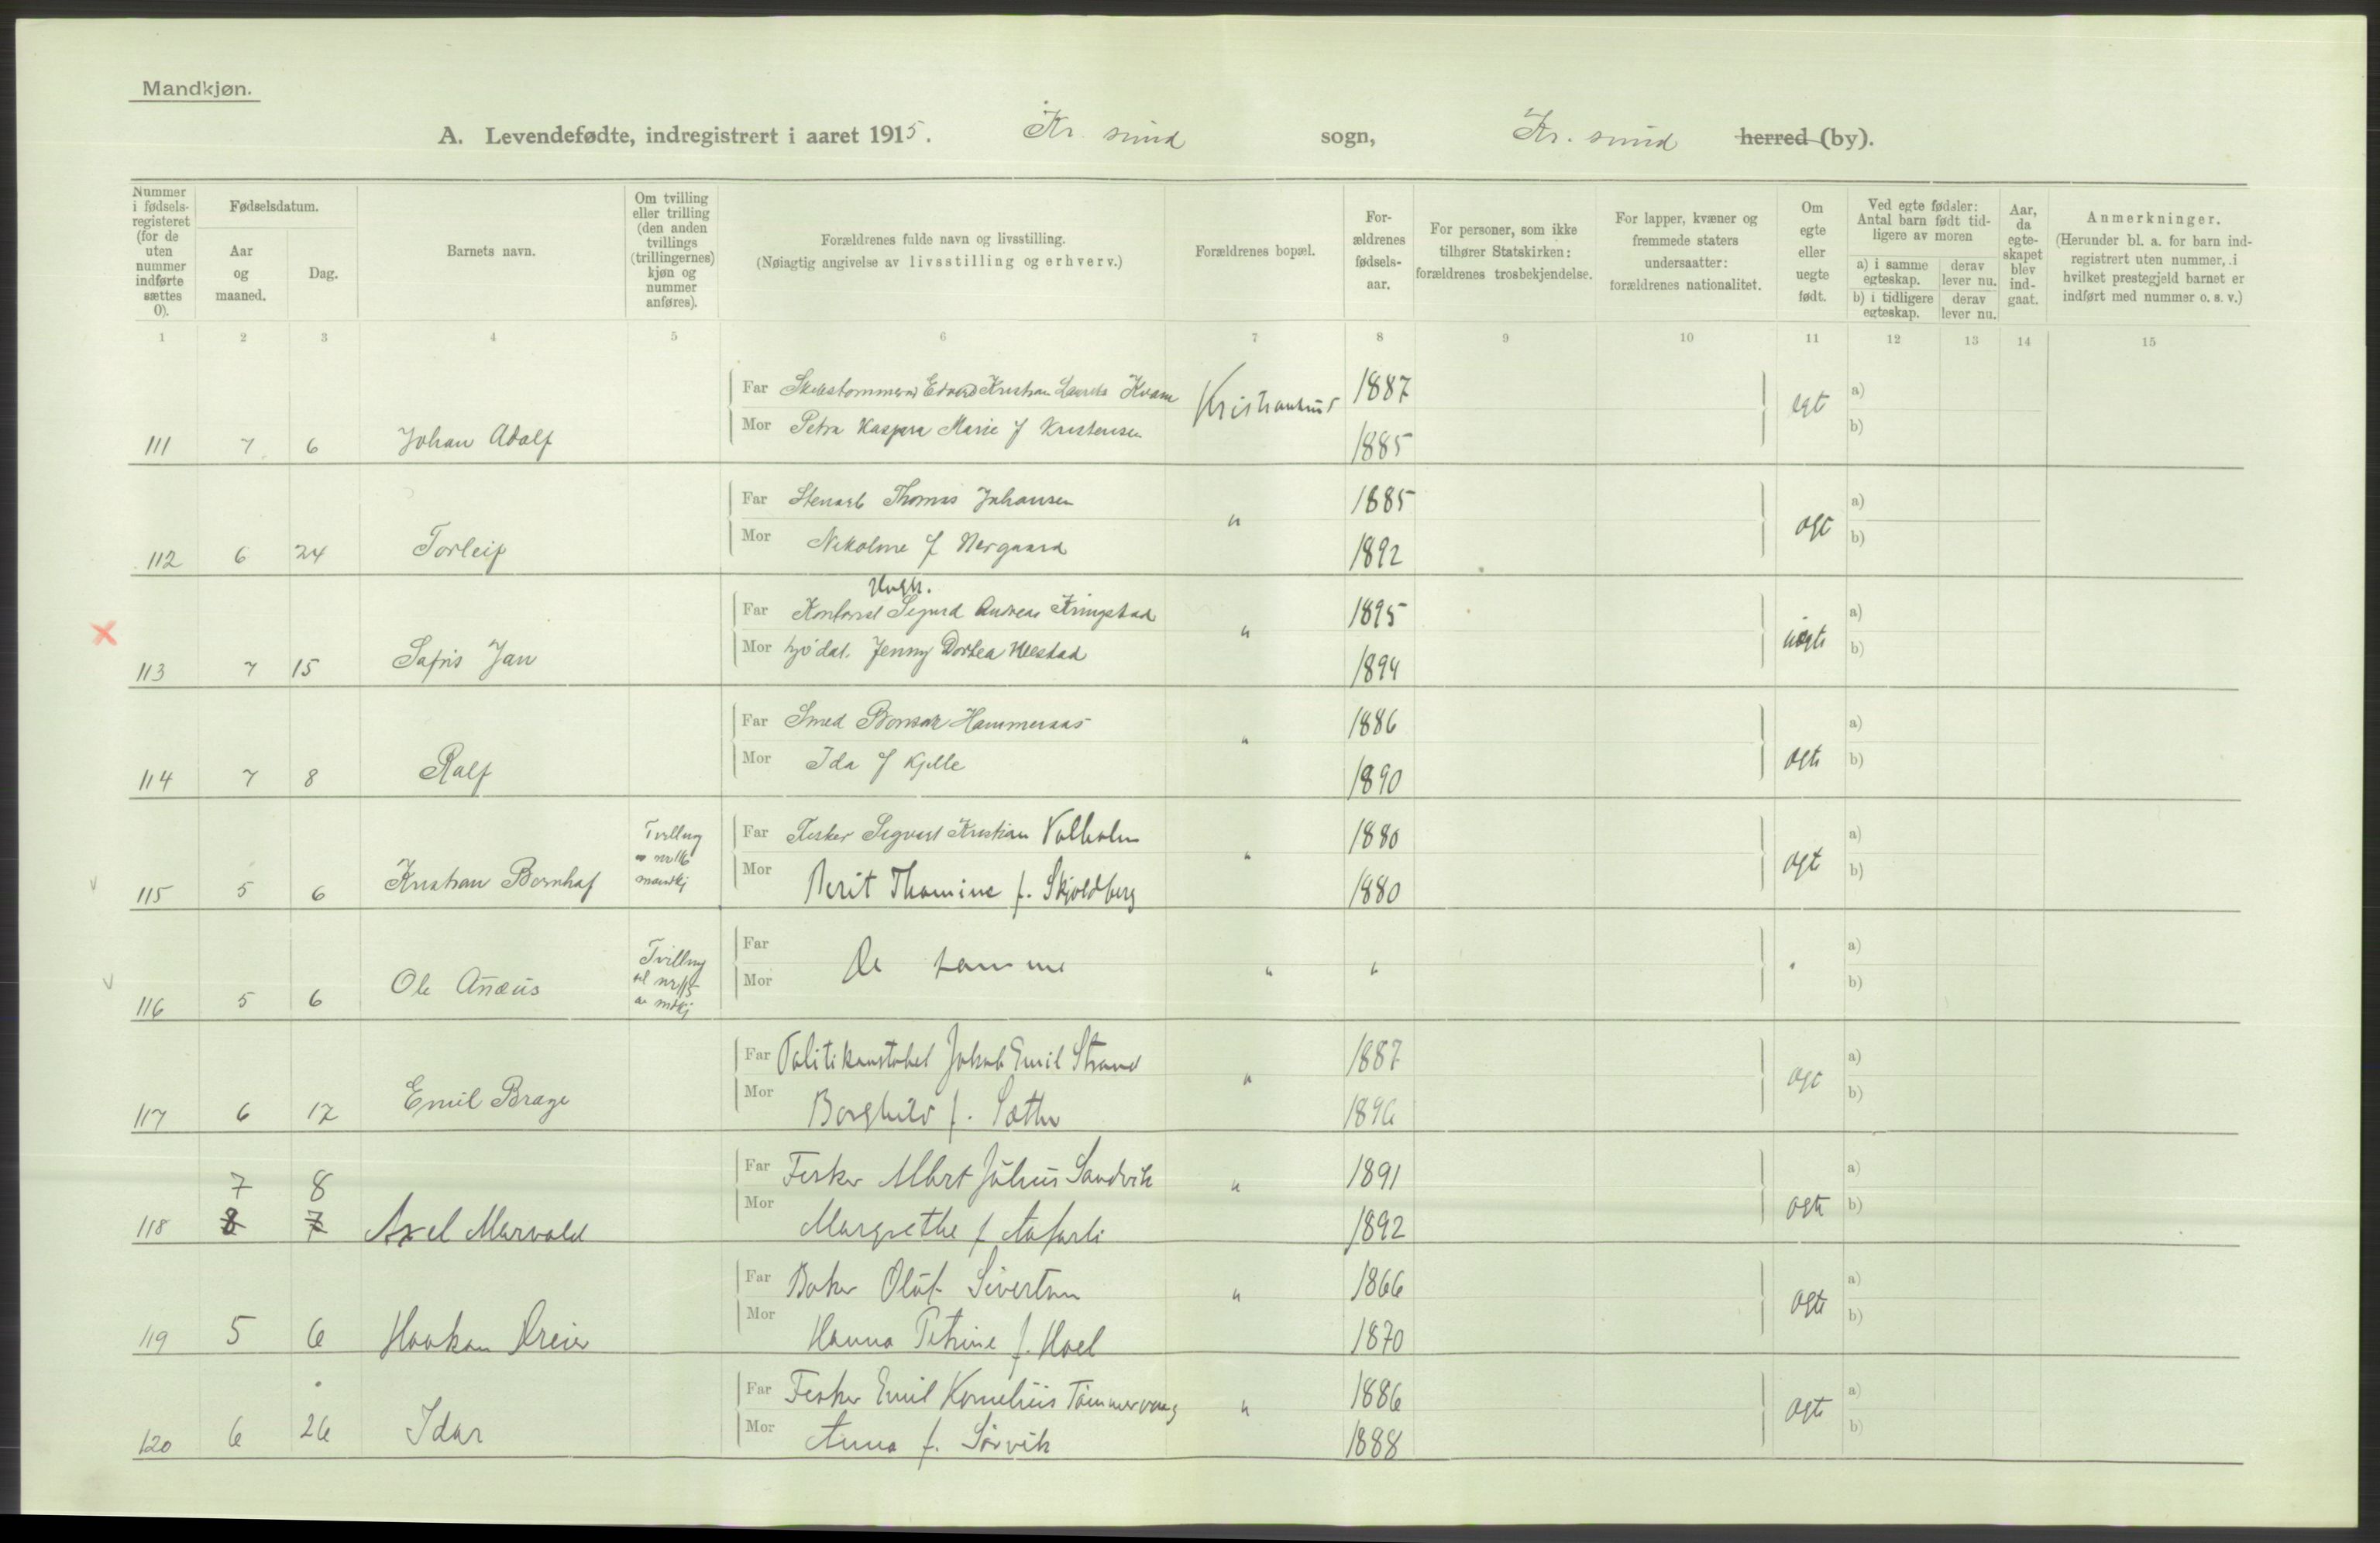 Mandkjøn.
A. Levendefødte, indregistrert i aaret 1915. Kr. sund sogn, Kr. sund herred (by).
Nummer i fødselsregisteret (for de uten nummer indførte sættes 0).
Fødselsdatum.
Aar og maaned.
Dag.
Barnets navn.
Om tvilling eller trilling (den anden tvillings (trillingernes) kjøn og nummer anføres).
Forældrenes fulde navn og livsstilling.
(Nøiagtig angivelse av livsstilling og erhverv.)
Forældrenes bopæl.
Forældrenes fødselsaar.
For personer, som ikke tilhører Statskirken: forældrenes trosbekjendelse.
For lapper, kvæner og fremmede staters undersaatter: forældrenes nationalitet.
Om egte eller uegte født.
Ved egte fødsler: Antal barn født tidligere av moren
a) i samme egteskap. derav lever nu.
b) i tidligere egteskap. derav lever nu.
Aar, da egteskapet blev indgaat.
Anmerkninger.
(Herunder bl. a. for barn indregistrert uten nummer, i hvilket prestegjeld barnet er indført med nummer o. s. v.)
1 2 3 4 5 6 7 8 9 10 11 12 13 14 15
Far Edvard Kristian Kvam Kristiansund 1887 egt a)
111 7 6 Johan Adolf Mor Petra Kaspara Marie f Kristensen 1885 b)
Far Stenarb Thomas Johansen " 1885 a)
112 6 24 Torleif Mor Nikoline f Nergaard 1892 egt b)
Far Sigurd Andreas Kringstad " 1895 a)
113 7 15 Jan Mor Jenny Dortea 1894 uegte b)
Far Smed Hammeraas " 1886 a)
114 7 8 Ralf Mor Ida f Kjelle 1890 egte b)
Tvilling
Far Fisker Sigvart Kristian Valholm " 1880 a)
nr 116
mandkj
115 5 6 Kristian Bernhof Mor Berit Thomine f. Skjoldberg 1880 egt b)
Tvilling
Far De samme " " " a)
til nr 115
av mdkj
116 5 6 Ole Mor b)
Far Politikonstabel Jakob Emil Strand " 1887 a)
117 6 17 Emil Brage Mor Borghild f. Sæther 1896 egt b)
7 8 Far Fisker Albert Julius Sandvik " 1891 a)
118 8 7 Axel Marvald Mor Margrethe f 1892 egte b)
Far Baker Oluf Sivertsen " 1866 a)
119 5 6 Haakon Dreier Mor Hanna Petrine f. Hoel 1870 egte b)
Far Fisker Emil Kornelius Tømmervaag " 1886 a)
120 6 26 Idar Mor Anna f. Sørvik 1888 egte b)